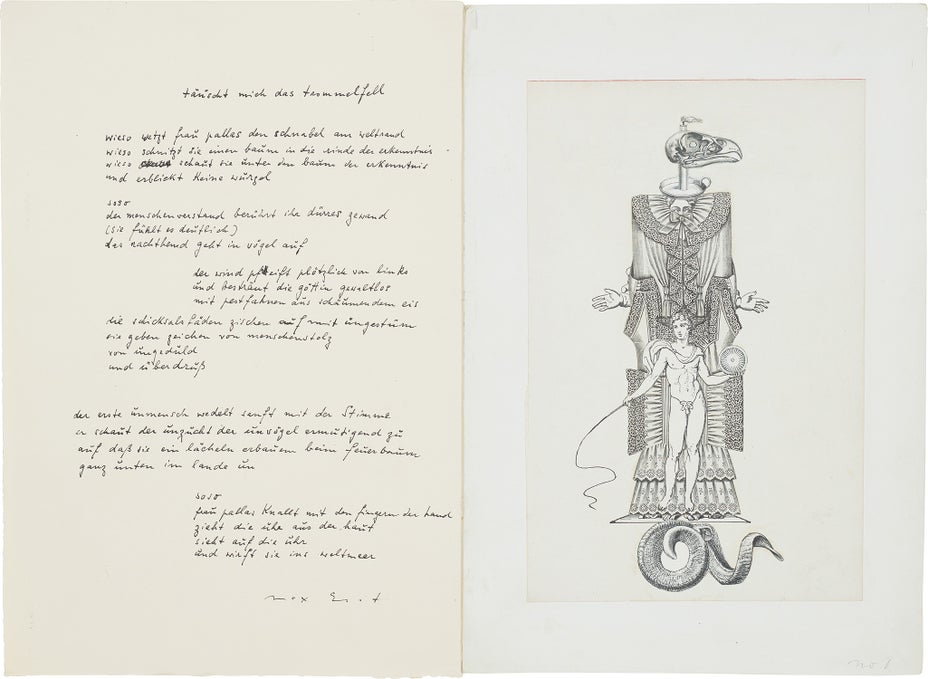 täuscht mich das trommelfell
wieso wetzt frau pallas den schnabel am weltrand
wieso schnitzt sie einen baum in die rinde der erkenntnis
wieso schaut sie unter den baum der erkenntnis
und erblickt keine wurzel
soso
der menschenverstand berührt ihr dürres gewand
(sie fühlt es deutlich)
das nachthemd geht in vögel auf
der wind pfeift plötzlich von links
und bestraut die göttin gewaltlos
mit pestfahnen aus schäumendem eis
die schicksalsfäden zischen auf mit ungestüm
sie geben zeichen von menschenstolz
von ungeduld
und überdruß
der erste unmensch wedelt sanft mit der Stimme
er schaut der unzucht der unvögel ermutigend zu
auf daß sie ein lächeln erbauen beim feuerbaum
ganz unten im lande un
soso
frau pallas knallt mit den fingern der hand
zieht die uhr aus der haut
sieht auf die uhr
und wirft sie ins weltmeer
max ernst
no 1